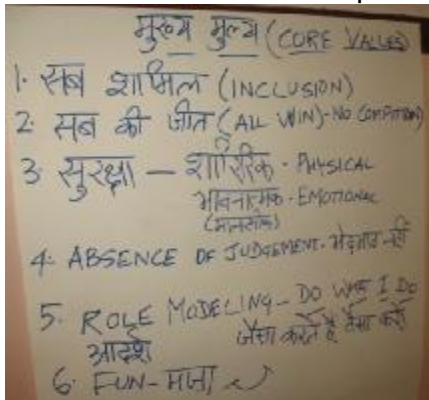 मुख्य मुल्य (CORE VALUES)
1. सब शामिल (INCLUSION)
2. सब की जीत (ALL WIN) - NO COMPTITION)
3 सुरक्षा - शारीरिक - PHYSICAL
भावनात्मक - EMOTIONAL
(मानसीक)
4. ABSENCE OF JUDGEMENT - भेदभाव नहीं
5. ROLE MODELING - DO WHAT I DO
आदर्श जैसा करते है वैसा करो
6. FUN - मजा